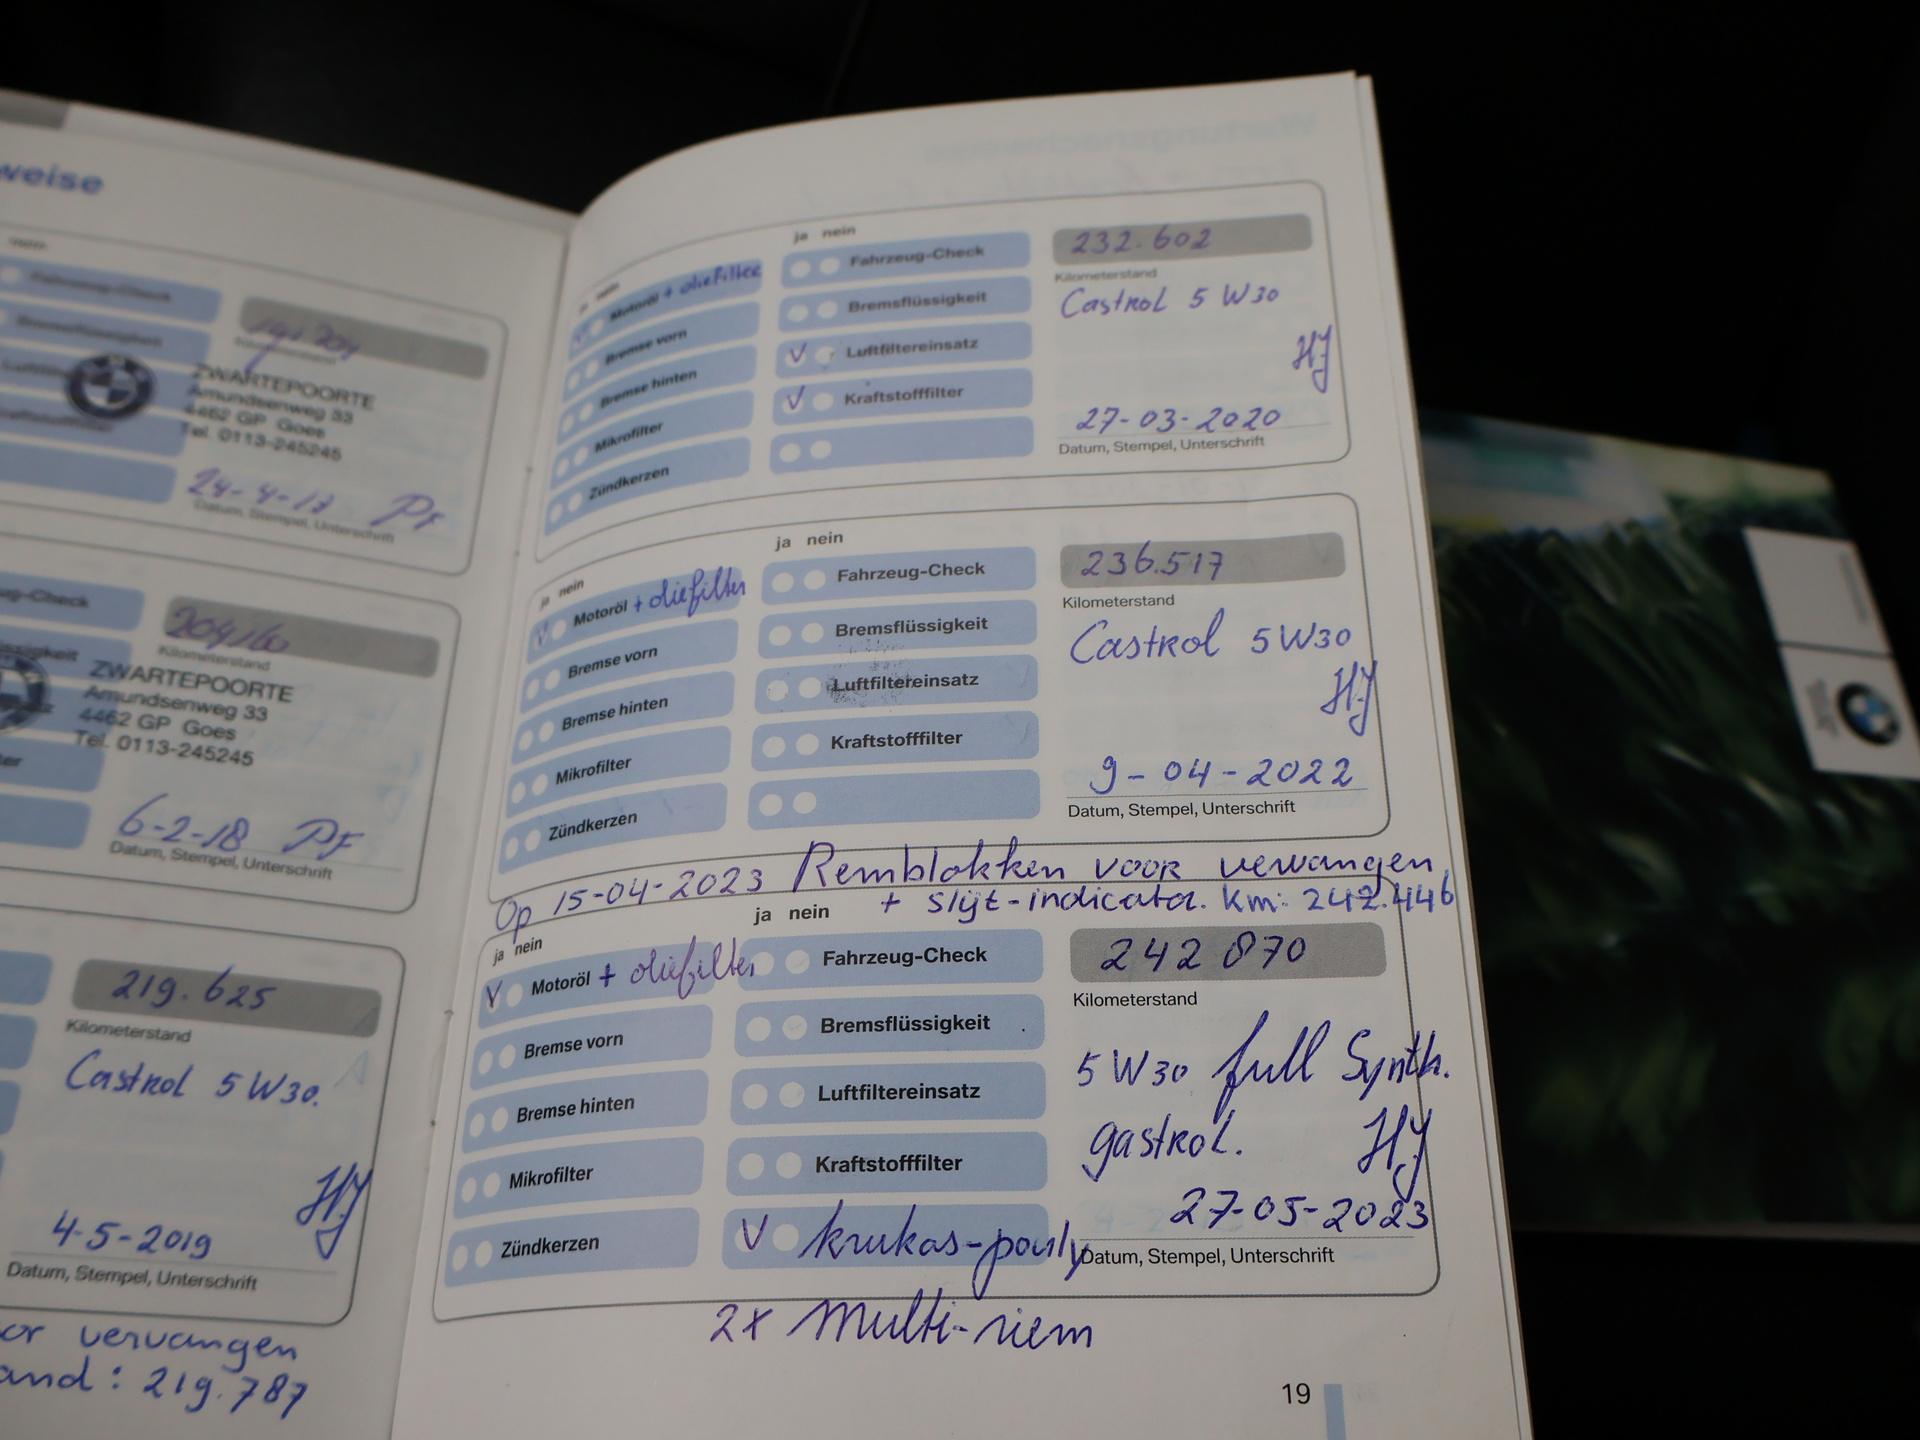 weise
nein
Fahrzeug-Check
Bremsflüssigkeit
Kilometerstand
ZWARTEPOORTE
Amundsenweg 33
4462 GP Goes
Tel. 0113-245245
24-4-17 PF
Datum, Stempel, Unterschrift
ug-Check
ssigkeit
204160
Kilometerstand
ZWARTEPOORTE
Amundsenweg 33
4462 GP Goes
Tel. 0113-245245
ter
6-2-18 PF
Datum, Stempel, Unterschrift
219.625
Kilometerstand
Castrol 5W30.
HJ
4-5-2019
Datum, Stempel, Unterschrift
or vervangen
and: 219.787
ja nein
Motoröl + oliefilter
Bremse vorn
Bremse hinten
Mikrofilter
Zündkerzen
ja nein
Fahrzeug-Check
Bremsflüssigkeit
V Luftfiltereinsatz
V Kraftstofffilter
232.602
Kilometerstand
Castrol 5W30
HJ
27-03-2020
Datum, Stempel, Unterschrift
ja nein
V Motoröl + oliefilter
Bremse vorn
Bremse hinten
Mikrofilter
Zündkerzen
ja nein
Fahrzeug-Check
Bremsflüssigkeit
Luftfiltereinsatz
Kraftstofffilter
236.517
Kilometerstand
Castrol 5W30
HJ
9-04-2022
Datum, Stempel, Unterschrift
Op 15-04-2023 Remblokken voor vervangen
+ slijt-indicator. Km: 242.446
ja nein
V Motoröl + oliefilter
Bremse vorn
Bremse hinten
Mikrofilter
Zündkerzen
ja nein
Fahrzeug-Check
Bremsflüssigkeit
Luftfiltereinsatz
Kraftstofffilter
V krukas-pouly
242 870
Kilometerstand
5W30 full Synth.
gastrol.
HJ
27-05-2023
Datum, Stempel, Unterschrift
2x multi-riem
19